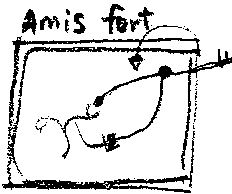 Amis fort